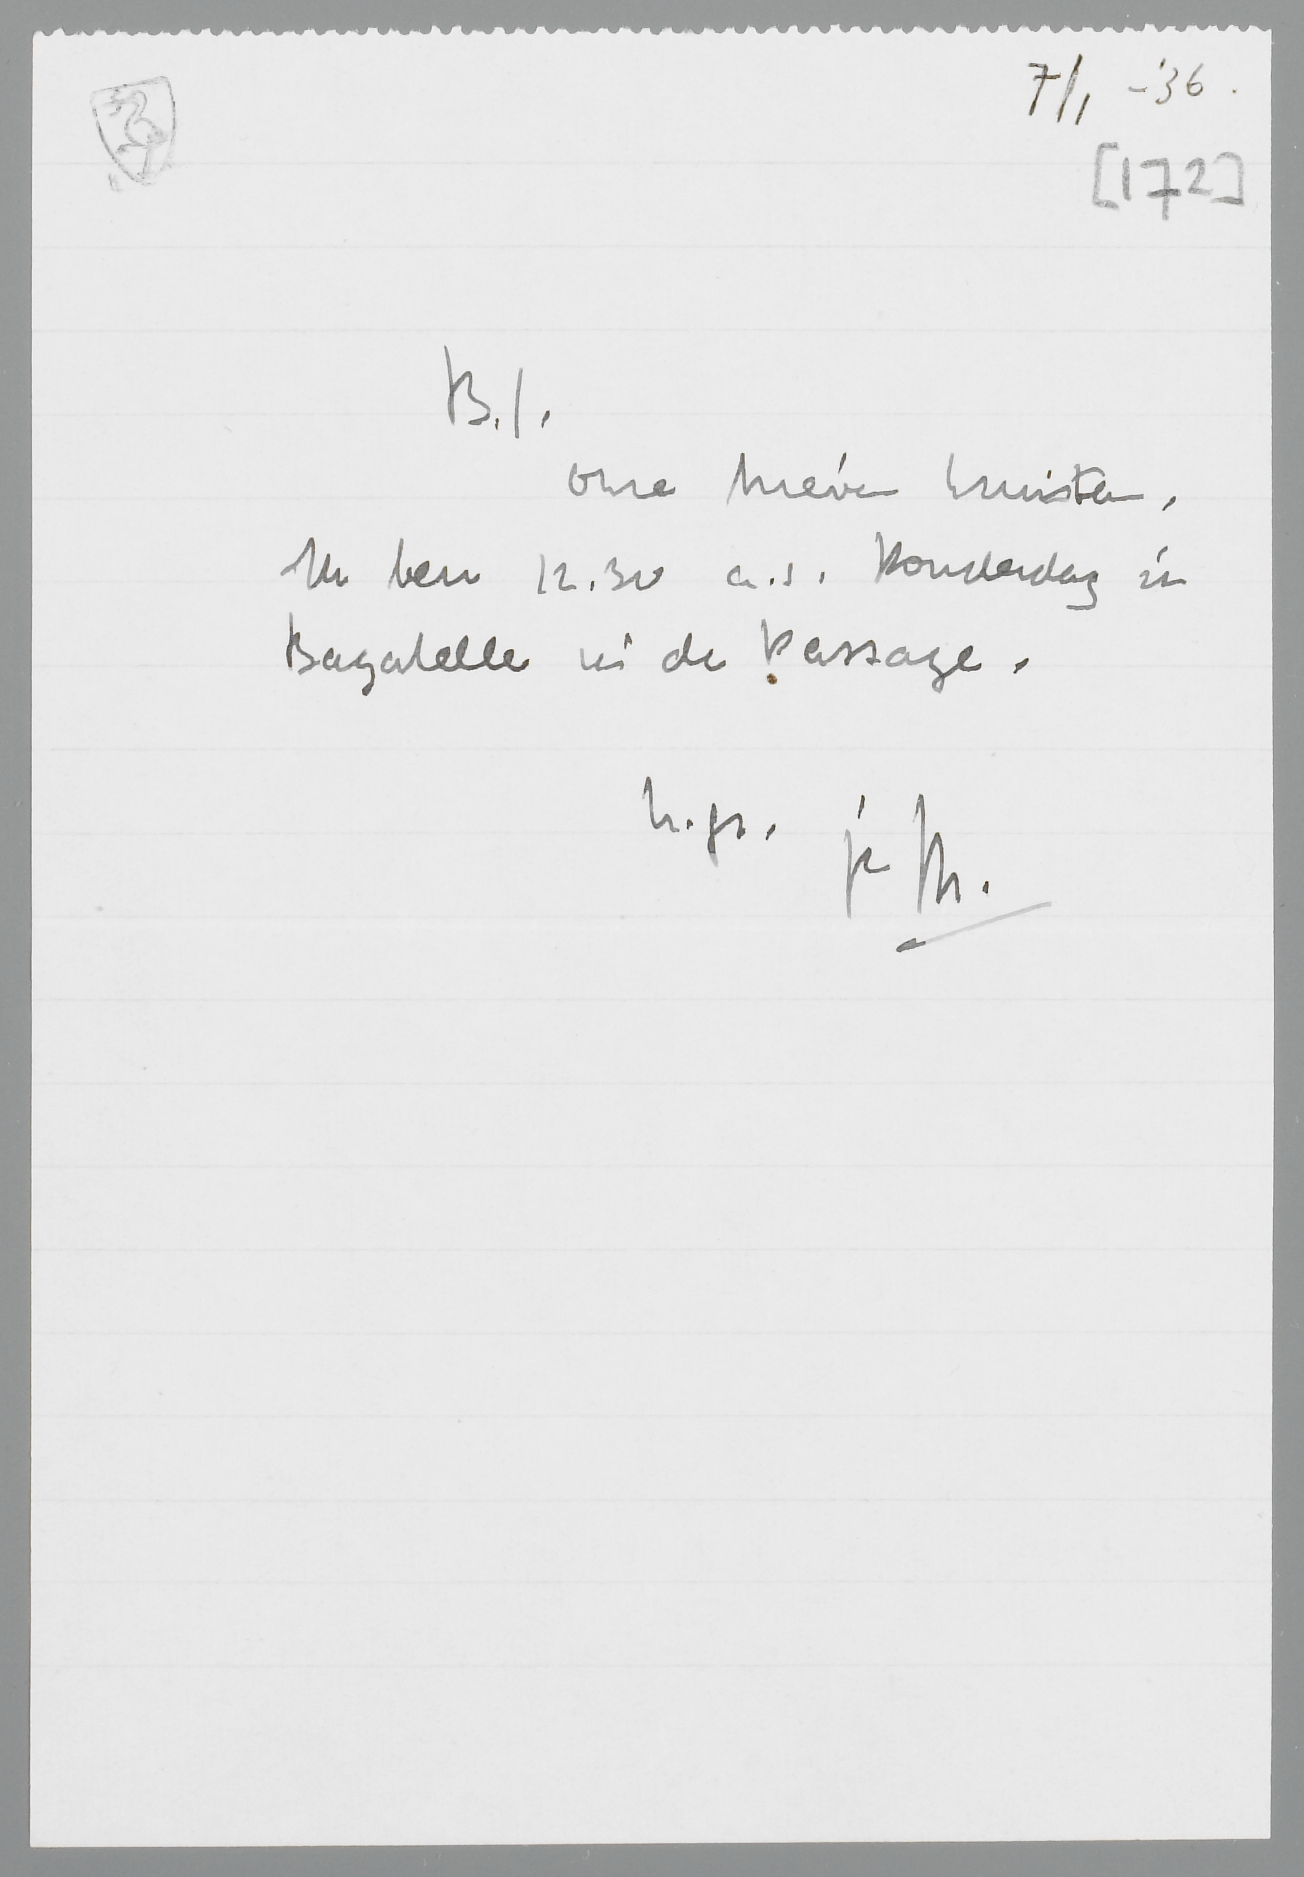 7/1 -'36.
[172]
B.J.
onze brieven kruisten.
Ik ben 12.30 a.s. Donderdag in
Bagatelle in de Passage.
h.gr. je